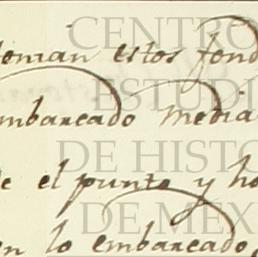 toman estos fond
embarcado media
de el punto y ho
en lo embarcado,
CENTRO
ESTUDI
DE HISTO
DE MÉX